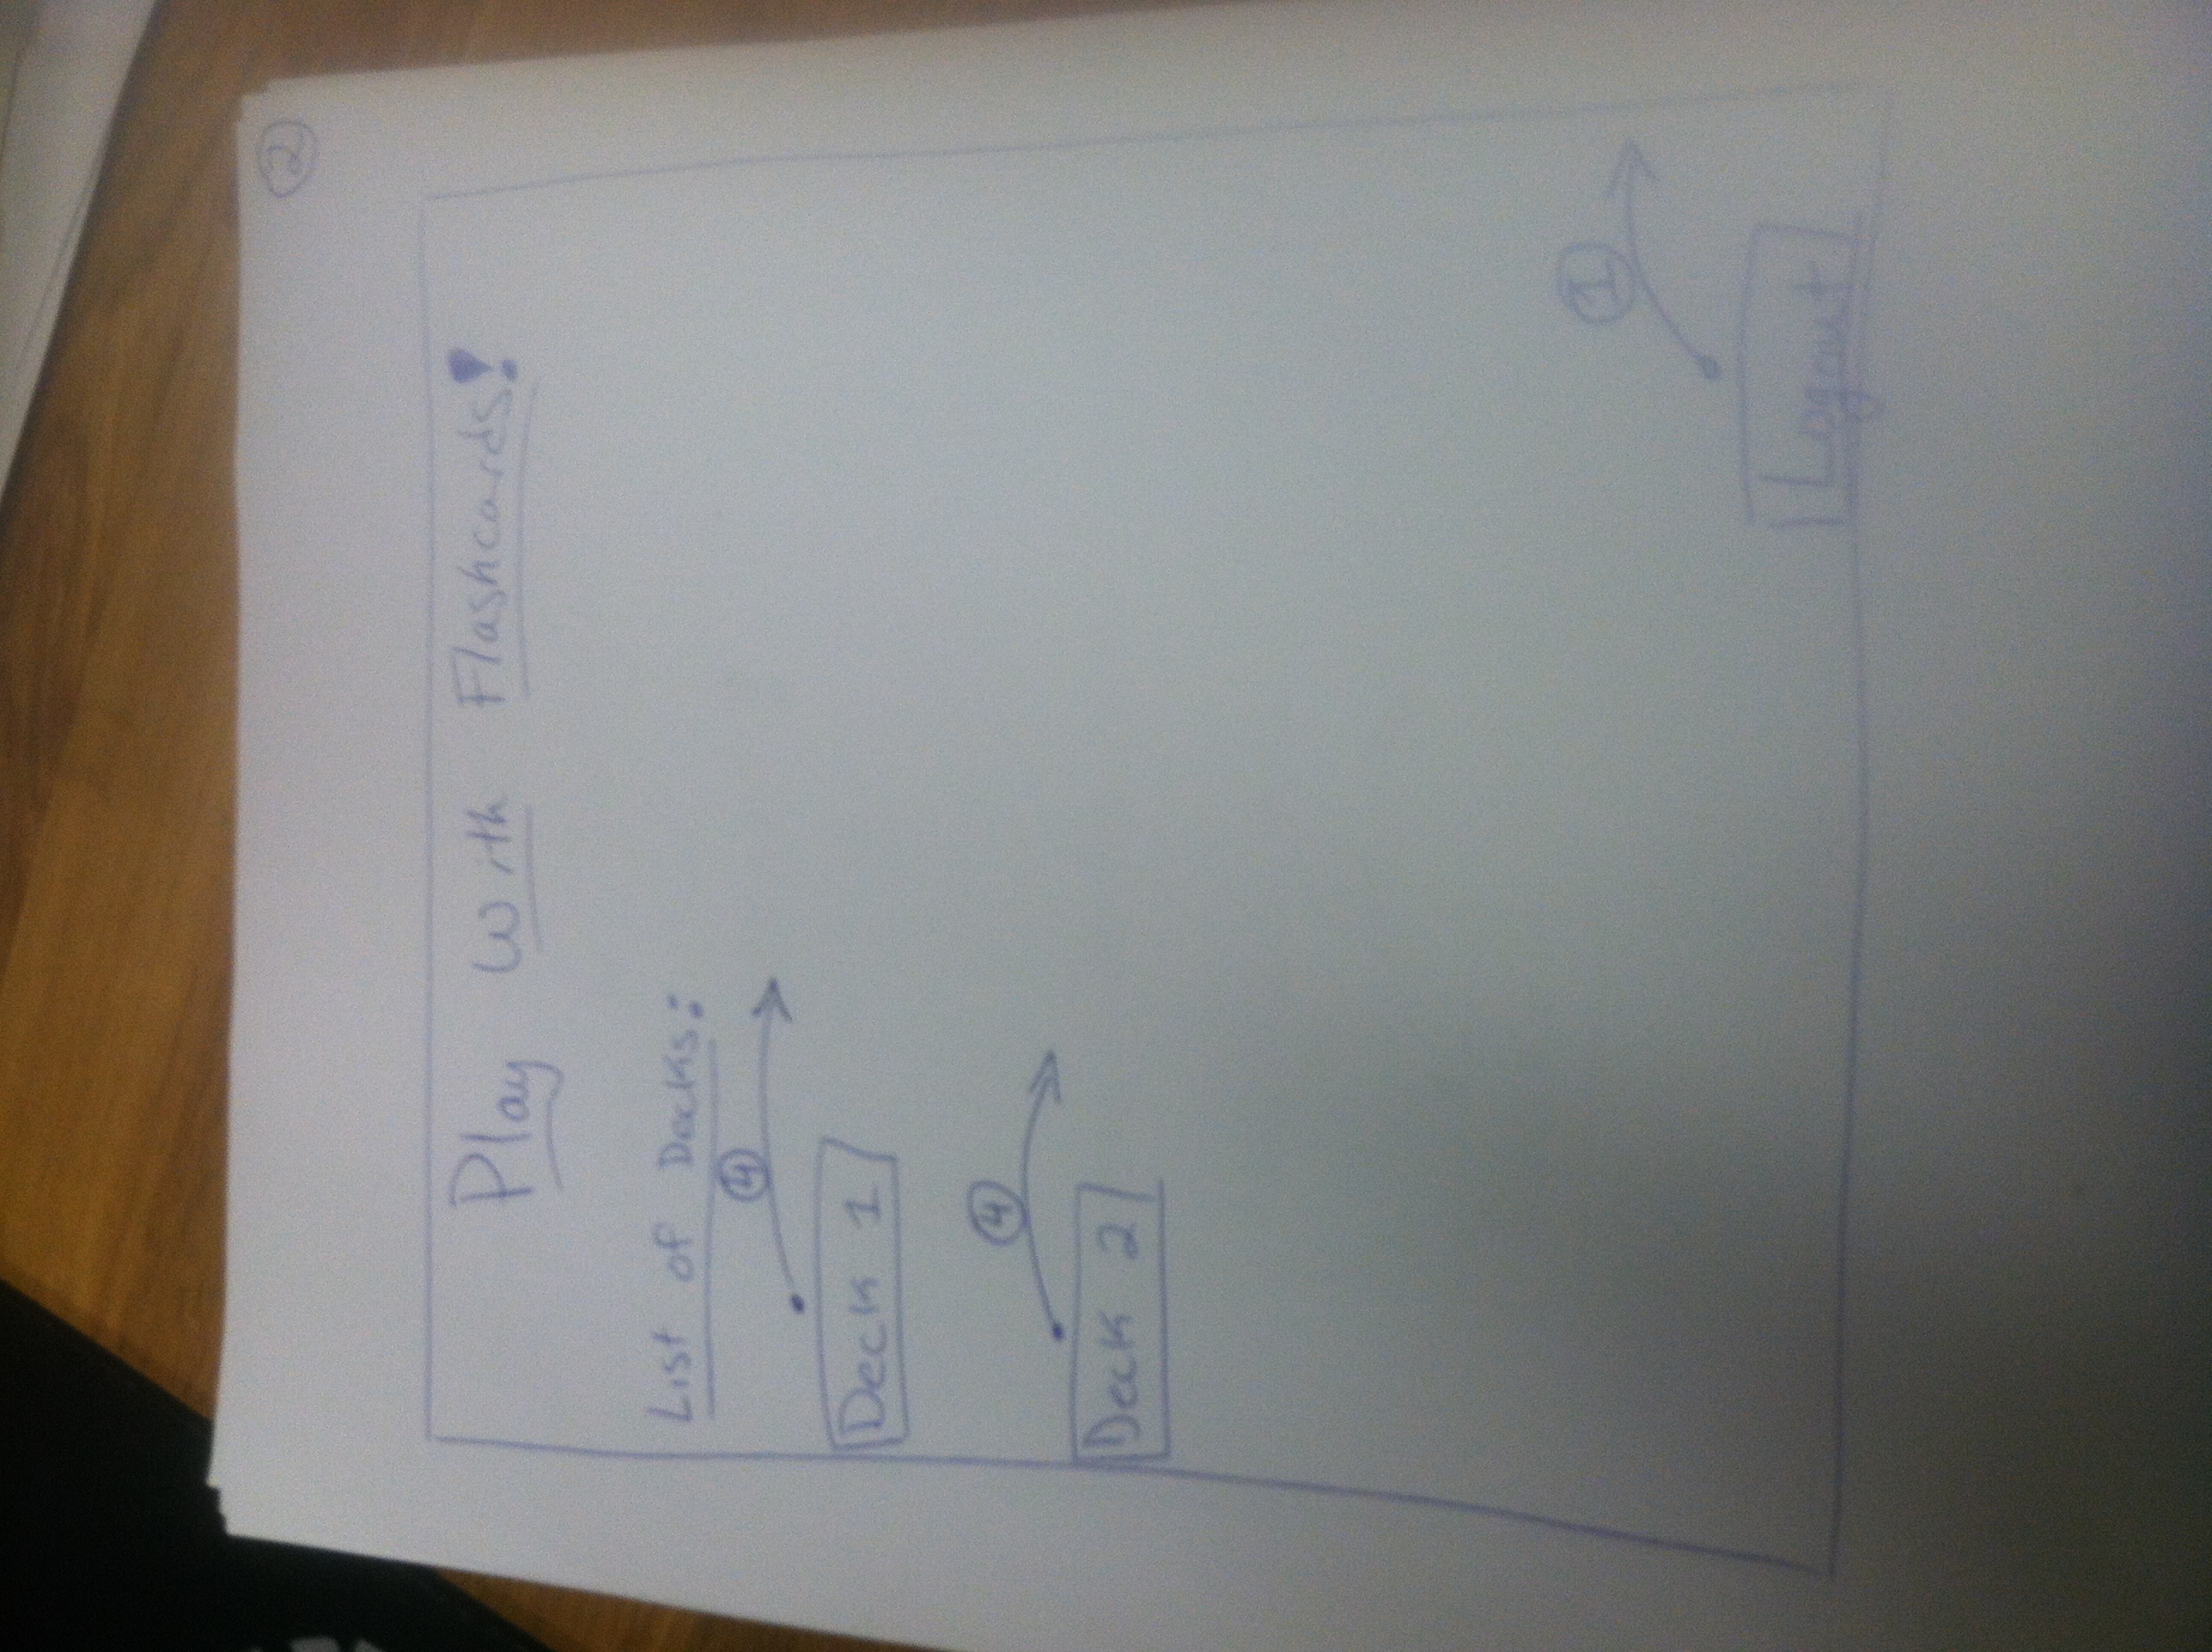 2
Play With Flashcards!
List of Decks:
4
Deck 1
4
Deck 2
1
Logout